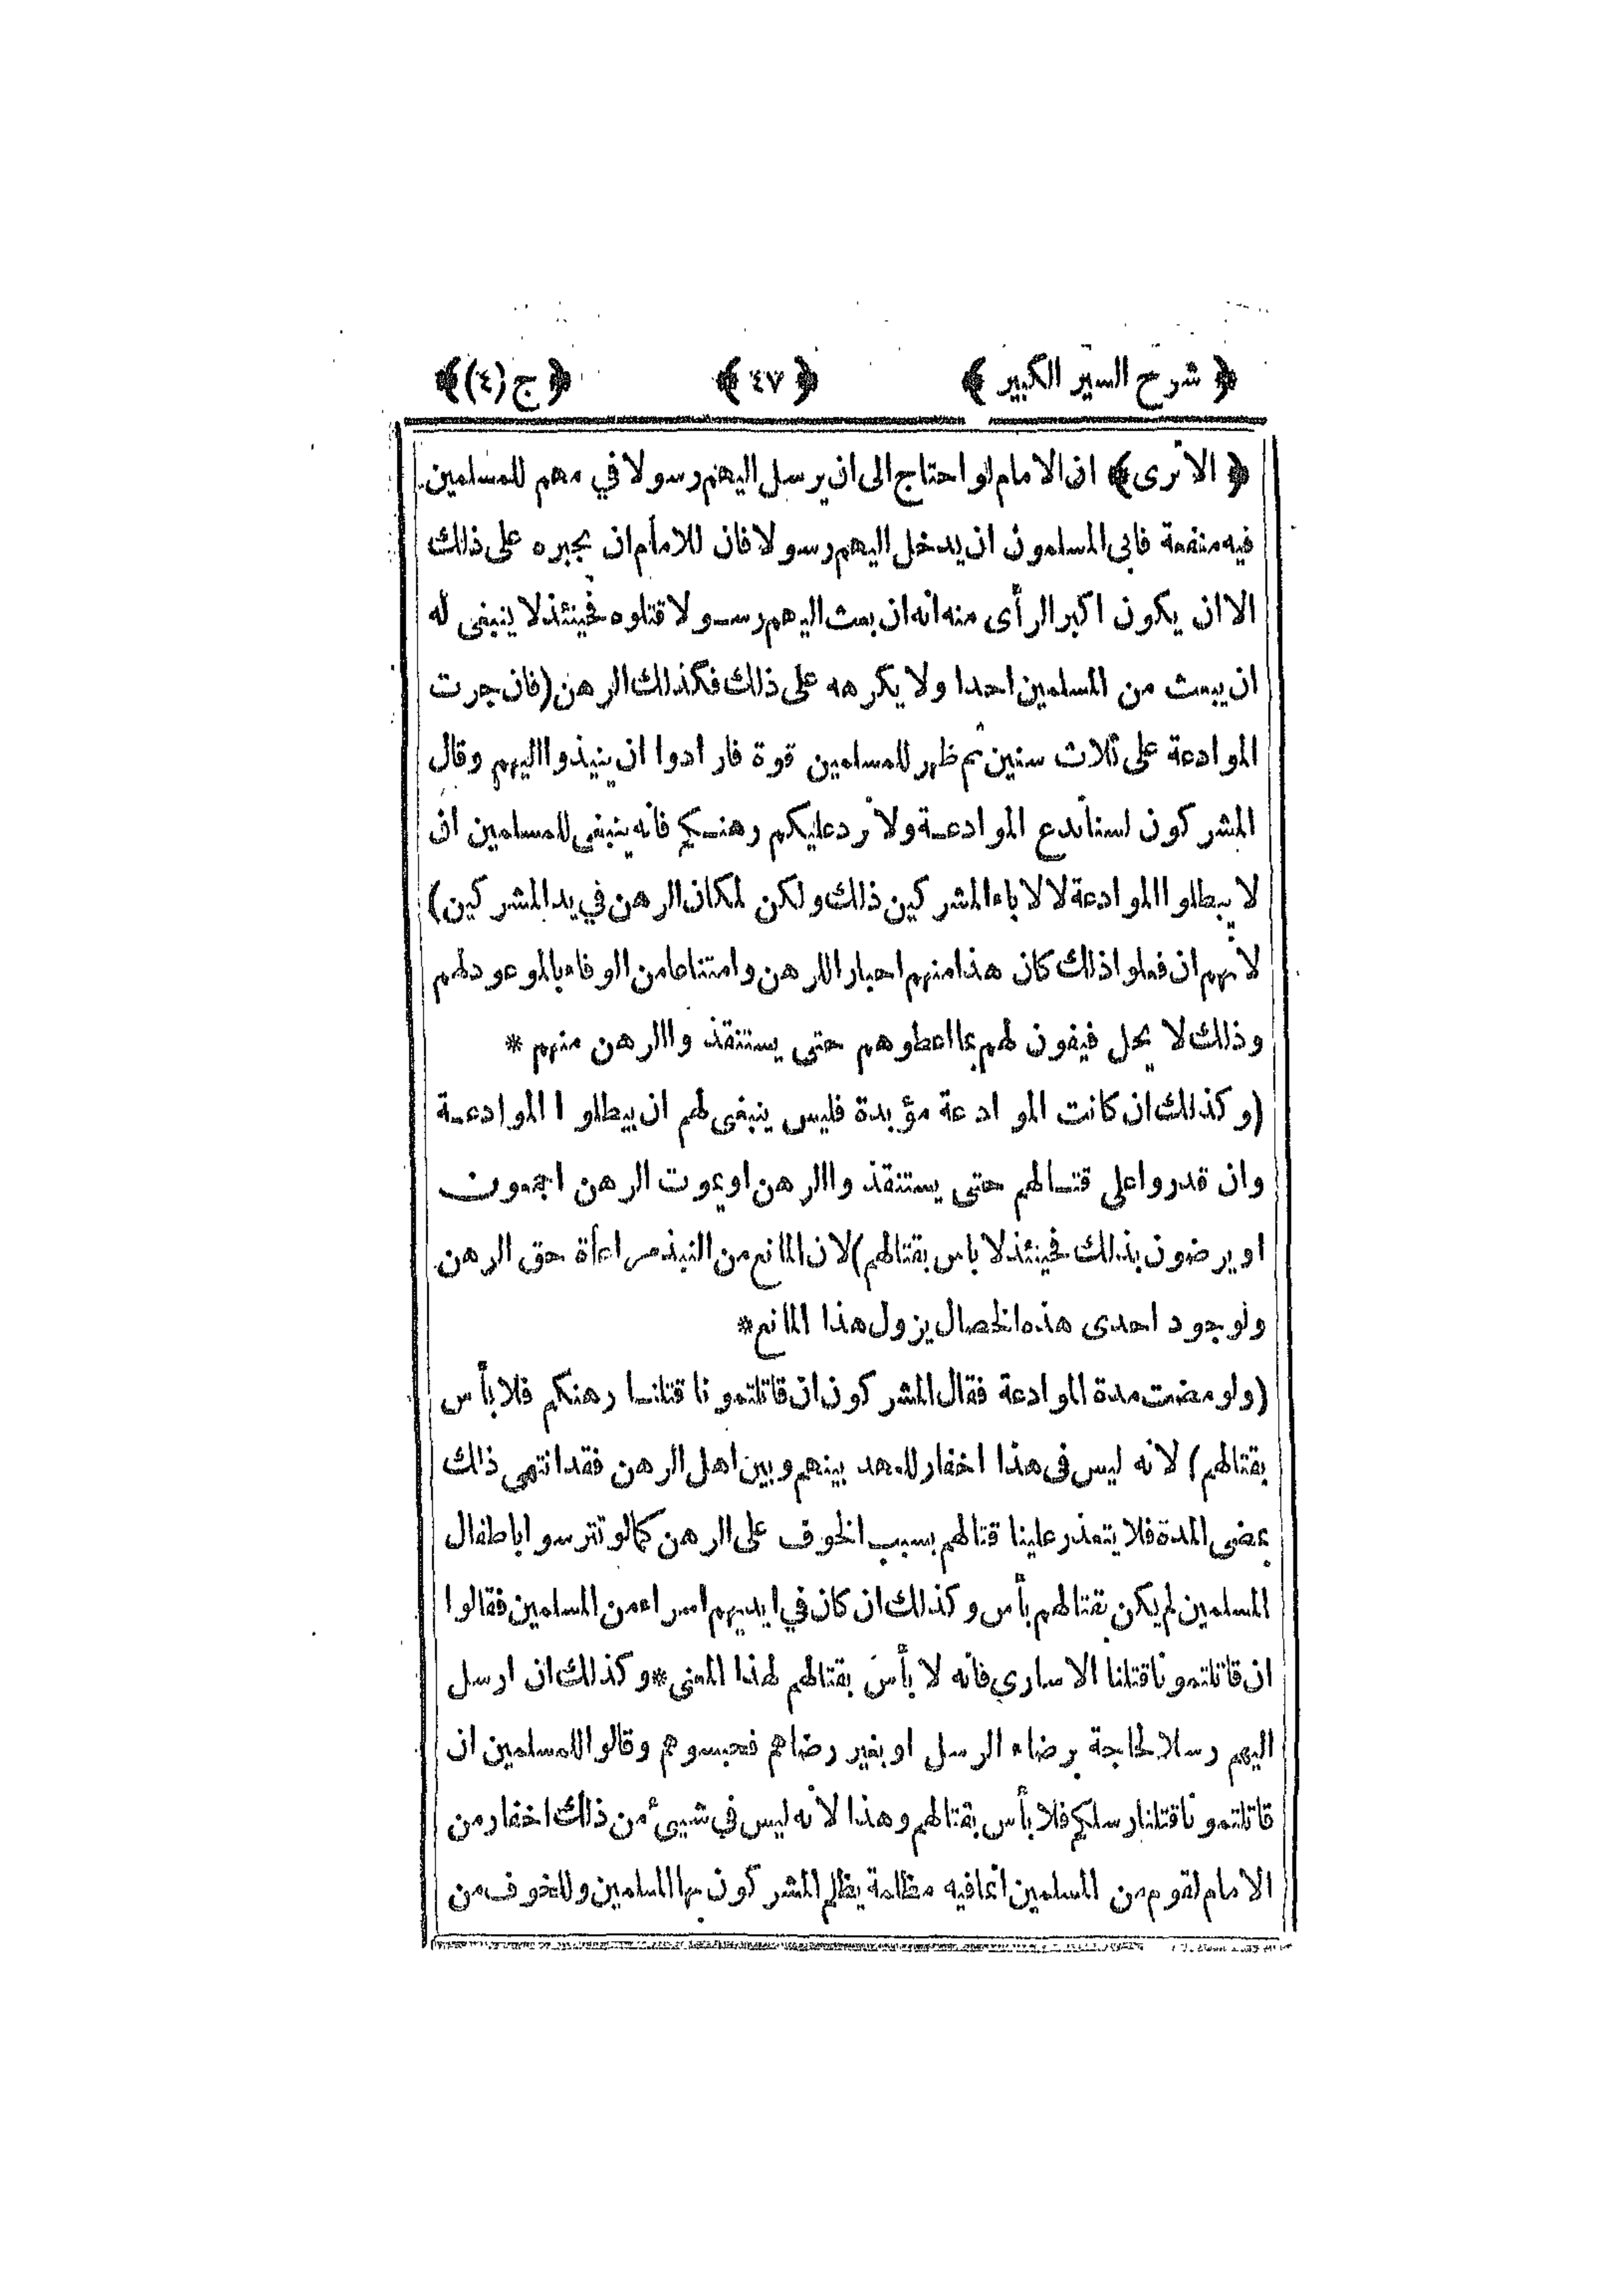 ﴿ شرح السير الكبير ﴾ ﴿ ٤٧ ﴾ ﴿ ج (٤) ﴾
﴿ الا ترى ﴾ ان الامام لو احتاج الى ان يرسل اليهم رسولا في مهم للمسلمين
فيه منفعة فابى المسلمون ان يدخل اليهم رسولا فان للامام ان يجبره على ذلك
الا ان يكون اكبر الرأى منه انه ان بعث اليهم رسولا قتلوه فحينئذ لا ينبغى له
ان يبعث من المسلمين احدا ولا يكرهه على ذلك فكذلك الرهن (فان جرت
الموادعة على ثلاث سنين ثم ظهر للمسلمين قوة فارادوا ان ينبذوا اليهم وقال
المشركون لسنا ندع الموادعة ولا نرد عليكم رهنكم فانه ينبغى للمسلمين ان
لا يبطلوا الموادعة لا لاباء المشركين ذلك ولكن لمكان الرهن في يد المشركين)
لانهم ان فعلوا ذلك كان هذا منهم اخبارا للرهن وامتناعا من الوفاء بالموعود لهم
وذلك لا يحل فيفون لهم بما اعطوهم حتى يستنقذوا الرهن منهم *
(وكذلك ان كانت الموادعة مؤبدة فليس ينبغى لهم ان يبطلوا الموادعة
وان قدروا على قتالهم حتى يستنقذوا الرهن او يموت الرهن اجمعون
او يرضون بذلك فحينئذ لا باس بقتالهم) لان المانع من النبذ مراعاة حق الرهن
ولوجود احدى هذه الخصال يزول هذا المانع *
(ولو مضت مدة الموادعة فقال المشركون ان قاتلتمونا قتلنا رهنكم فلا بأس
بقتالهم) لانه ليس فى هذا اخفار للعهد بينهم وبين اهل الرهن فقد انتهى ذلك
بمضى المدة فلا يتعذر علينا قتالهم بسبب الخوف على الرهن كما لو تترسوا باطفال
المسلمين لم يكن بقتالهم بأس وكذلك ان كان في ايديهم اسراء من المسلمين فقالوا
ان قاتلتمونا قتلنا الاسارى فانه لا بأس بقتالهم لهذا المعنى * وكذلك ان ارسل
اليهم رسلا لحاجة برضاء الرسل او بغير رضاهم فحبسوهم وقالوا للمسلمين ان
قاتلتمونا قتلنا رسلكم فلا بأس بقتالهم وهذا لانه ليس في شيئ من ذلك اخفار من
الامام لقوم من المسلمين انما فيه مظلمة يظلم المشركون بها المسلمين وللخوف من